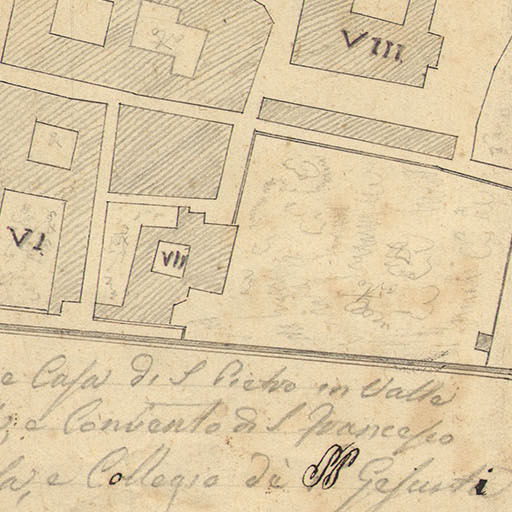 VIII
VI
VII
e Casa di S Pietro in Valle
e Convento di S Francesco
e Collegio di PP Gesuiti